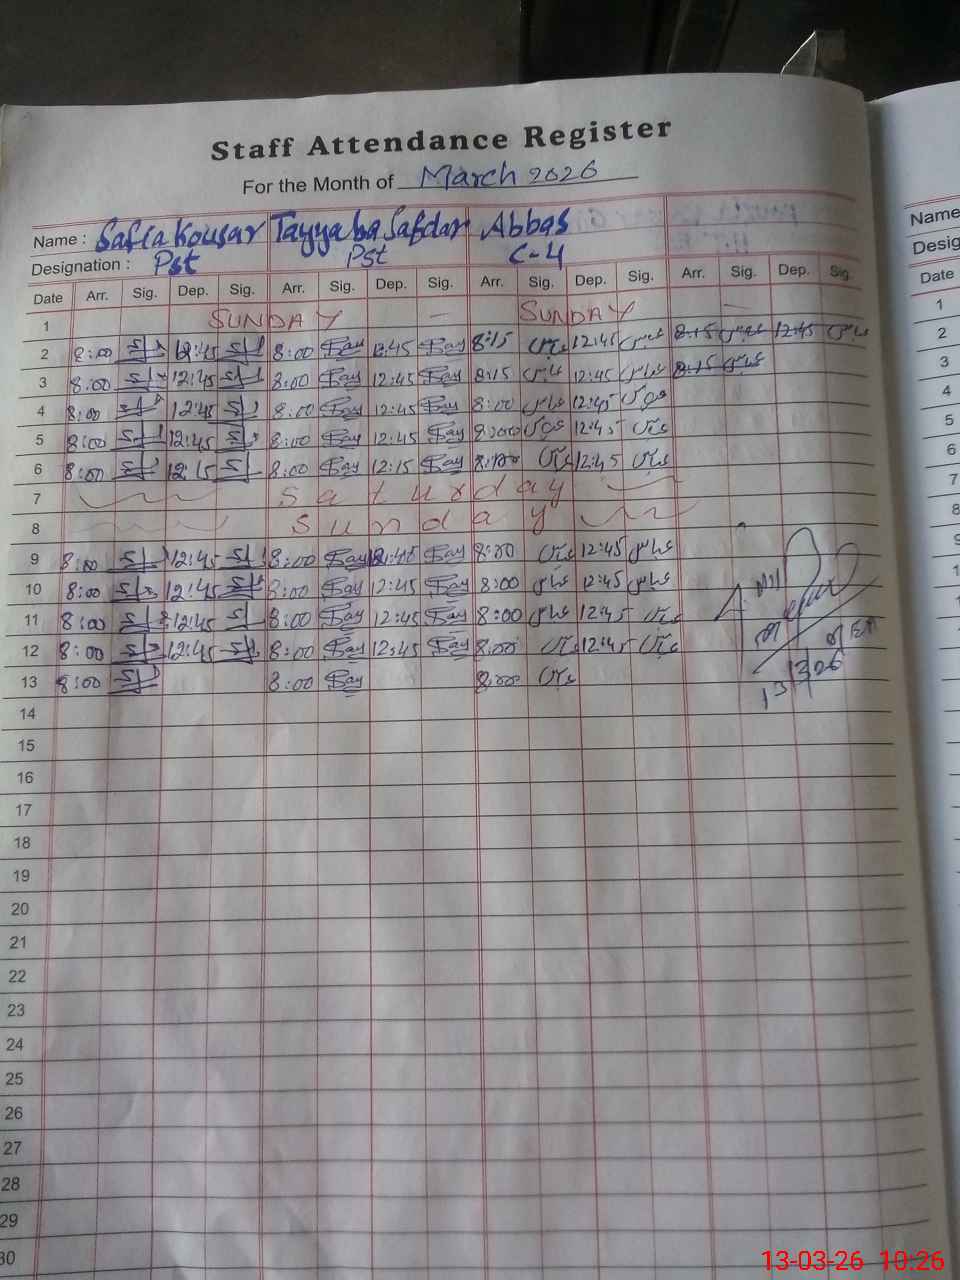 Staff Attendance Register
For the Month of March 2026
Name : Safia Kousar Tayyaba Safdar Abbas
Designation : Pst Pst C-4
Date Arr. Sig. Dep. Sig. Arr. Sig. Dep. Sig. Arr. Sig. Dep. Sig. Arr. Sig. Dep. Sig.
1 SUNDAY — SUNDAY —
2 8:00 12:45 8:00 12:45 8:15 عباس 12:45 عباس 8:15 عباس 12:45 عباس
3 8:00 12:45 8:00 12:45 8:15 عباس 12:45 عباس 8:15 عباس
4 8:00 12:45 8:00 12:45 8:00 عباس 12:45 عباس
5 8:00 12:45 8:00 12:45 8:00 عباس 12:45 عباس
6 8:00 12:15 8:00 12:15 8:00 عباس 12:45 عباس
7 Saturday
8 Sunday
9 8:00 12:45 8:00 12:45 8:00 عباس 12:45 عباس
10 8:00 12:45 8:00 12:45 8:00 عباس 12:45 عباس
11 8:00 12:45 8:00 12:45 8:00 عباس 12:45 عباس
12 8:00 12:45 8:00 12:45 8:00 عباس 12:45 عباس
13 8:00 8:00 8:00 عباس
13/3/26
14
15
16
17
18
19
20
21
22
23
24
25
26
27
28
29
30
Name
Desig
Date
1
2
3
4
5
6
7
8
9
1
1
1
1
13-03-26 10:26